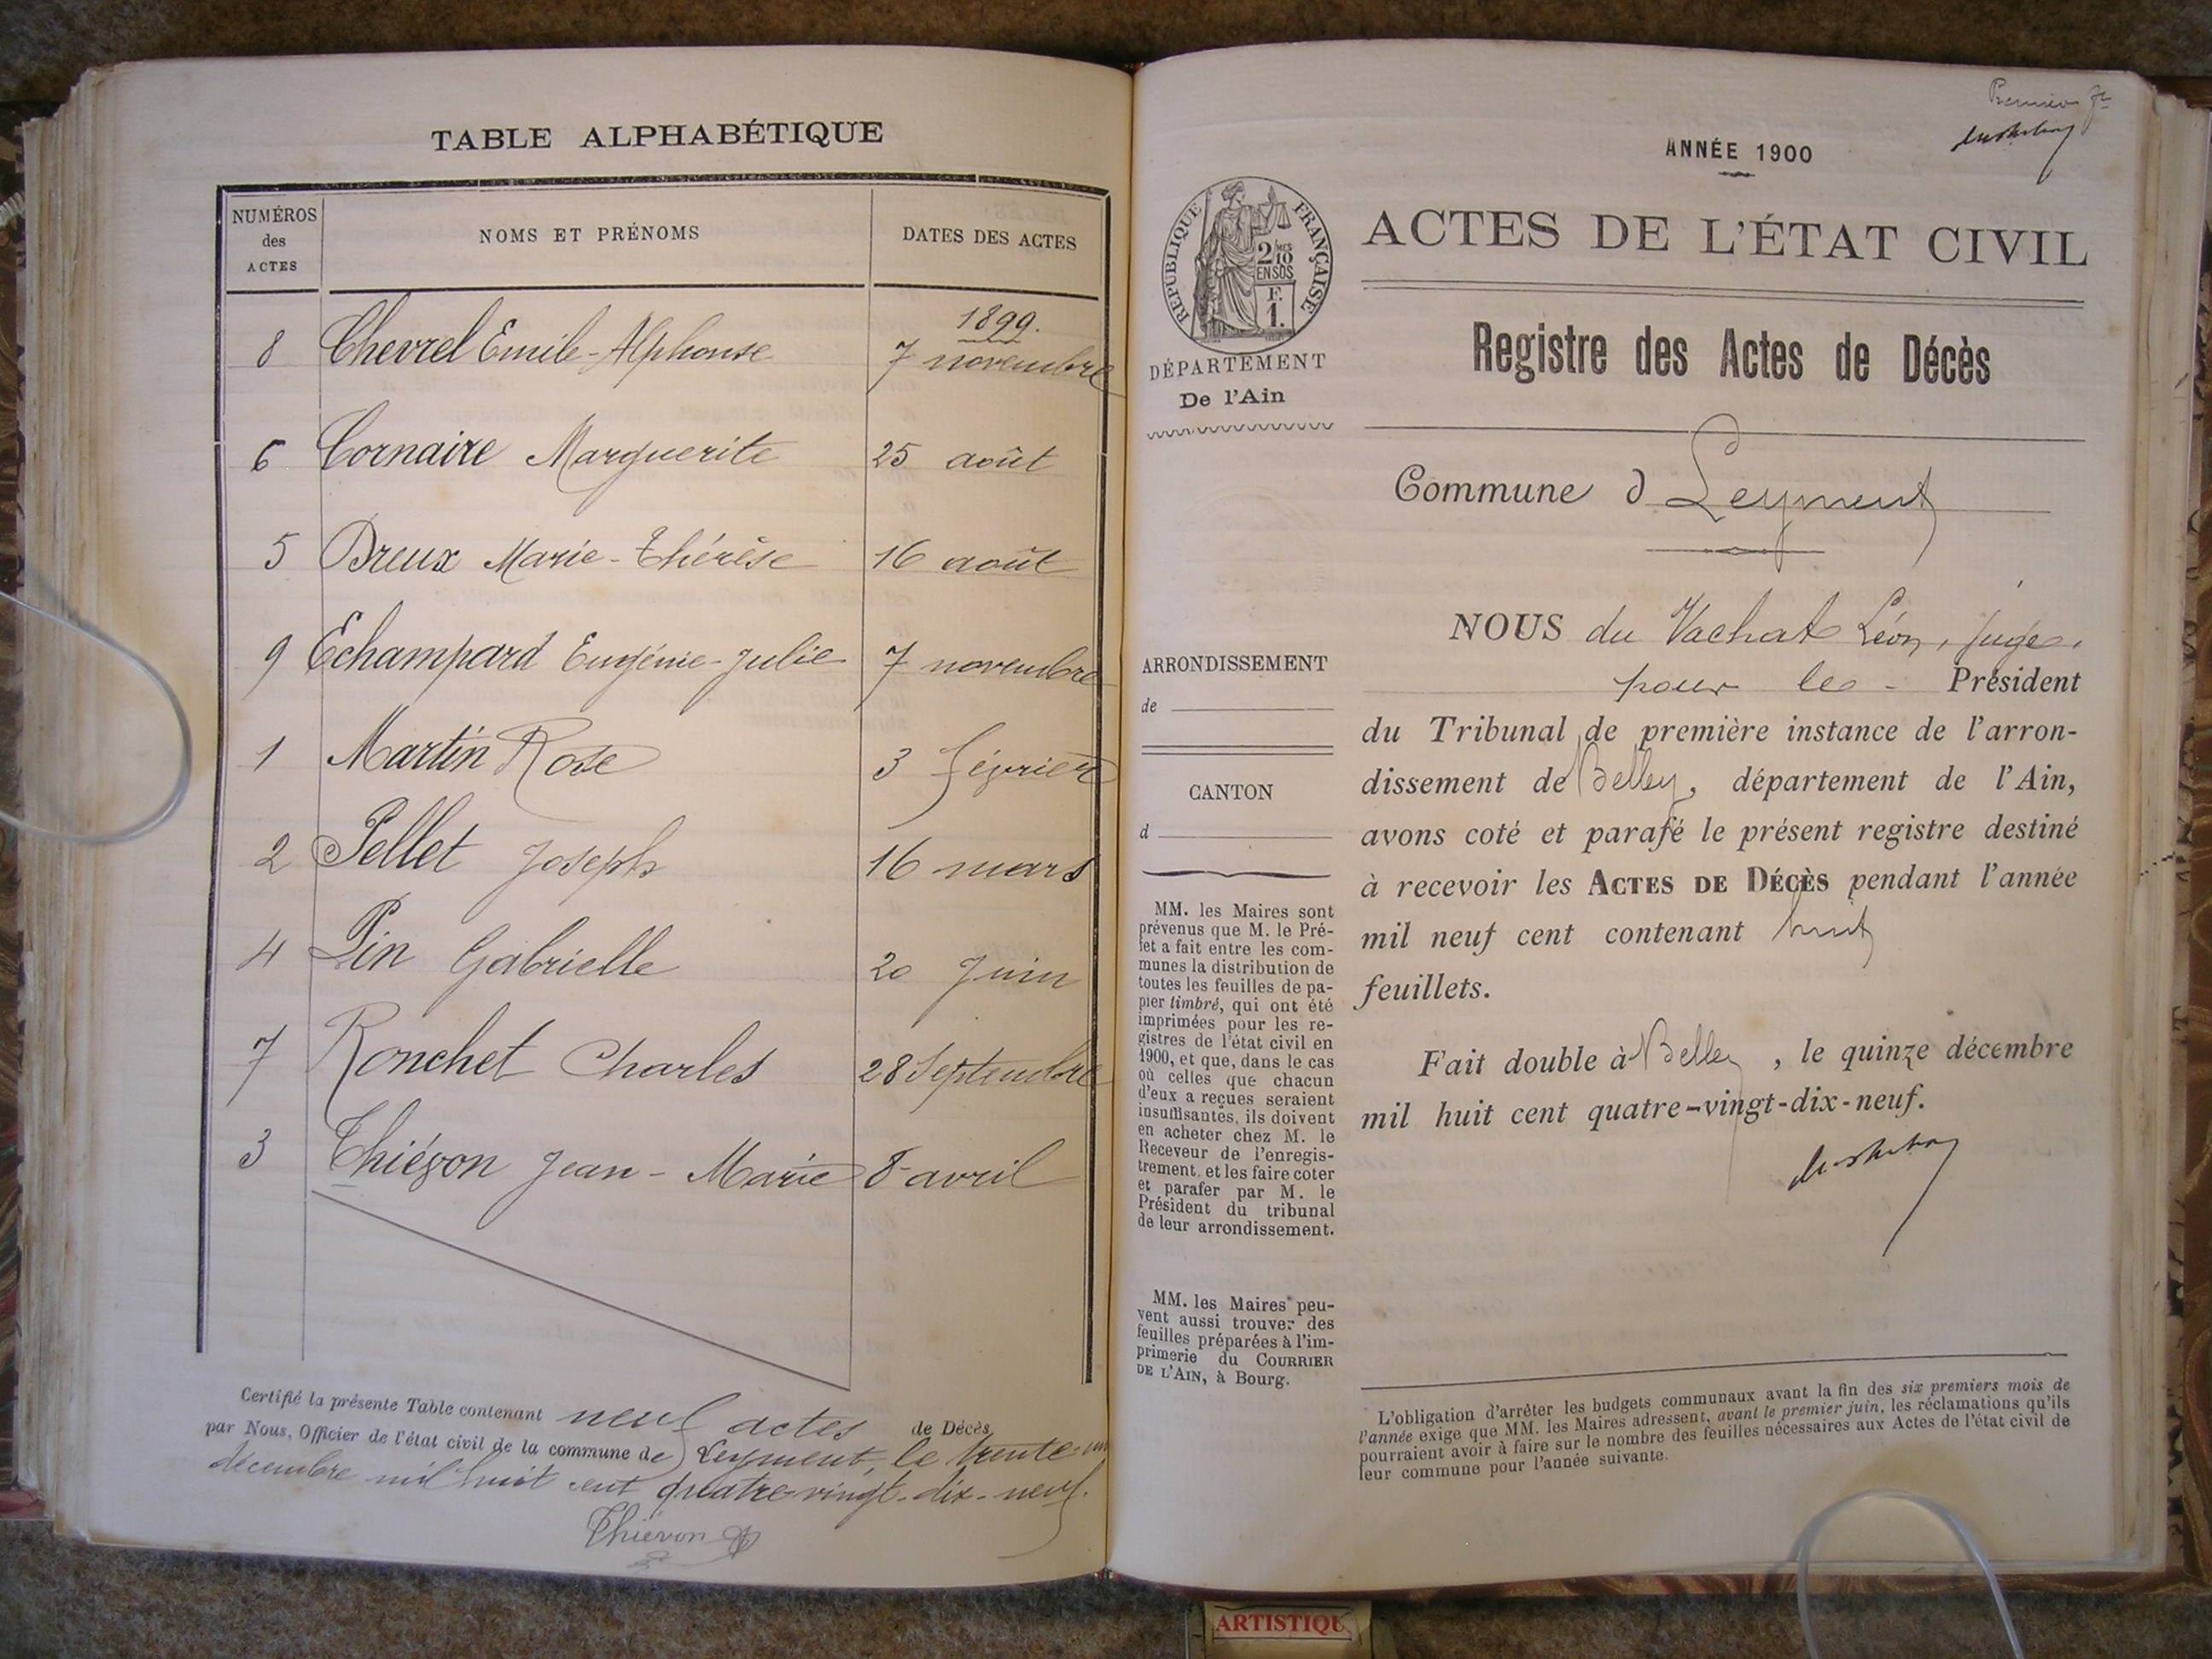 TABLE ALPHABÉTIQUE
NUMÉROS des ACTES
NOMS ET PRÉNOMS
DATES DES ACTES
1899.
8 Chevrel Emile-Alphonse 7 novembre
6 Cornaire Marguerite 25 août
5 Dreux Marie-Thérèse 16 août
9 Echampard Eugénie-Julie 7 novembre
1 Martin Rose 3 février
2 Pellet Joseph 16 mars
4 Pin Gabrielle 20 Juin
7 Ronchet Charles 28 Septembre
3 Thiévon Jean-Marie 8 avril
Certifié la présente Table contenant neuf actes de Décès,
par Nous, Officier de l'état civil de la commune de Leyment, le trente-un
décembre mil huit cent quatre-vingt-dix-neuf.
Thiévon
Premier
ANNÉE 1900
RÉPUBLIQUE FRANÇAISE
2/10 MES
EN SUS
F.
1.
ACTES DE L'ÉTAT CIVIL
DÉPARTEMENT
De l'Ain
Registre des Actes de Décès
Commune d Leyment
ARRONDISSEMENT
de
CANTON
d
MM. les Maires sont
prévenus que M. le Pré-
fet a fait entre les com-
munes la distribution de
toutes les feuilles de pa-
pier timbré, qui ont été
imprimées pour les re-
gistres de l'état civil en
1900, et que, dans le cas
où celles que chacun
d'eux a reçues seraient
insuffisantes, ils doivent
en acheter chez M. le
Receveur de l'enregis-
trement, et les faire coter
et parafer par M. le
Président du tribunal
de leur arrondissement.
MM. les Maires peu-
vent aussi trouver des
feuilles préparées à l'im-
primerie du COURRIER
DE L'AIN, à Bourg.
NOUS du Vachat Léon, juge,
pour le - Président
du Tribunal de première instance de l'arron-
dissement de Belley, département de l'Ain,
avons coté et parafé le présent registre destiné
à recevoir les ACTES DE DÉCÈS pendant l'année
mil neuf cent contenant huit
feuillets.
Fait double à Belley, le quinze décembre
mil huit cent quatre-vingt-dix-neuf.
L'obligation d'arrêter les budgets communaux avant la fin des six premiers mois de
l'année exige que MM. les Maires adressent, avant le premier juin, les réclamations qu'ils
pourraient avoir à faire sur le nombre des feuilles nécessaires aux Actes de l'état civil de
leur commune pour l'année suivante.
ARTISTIQU